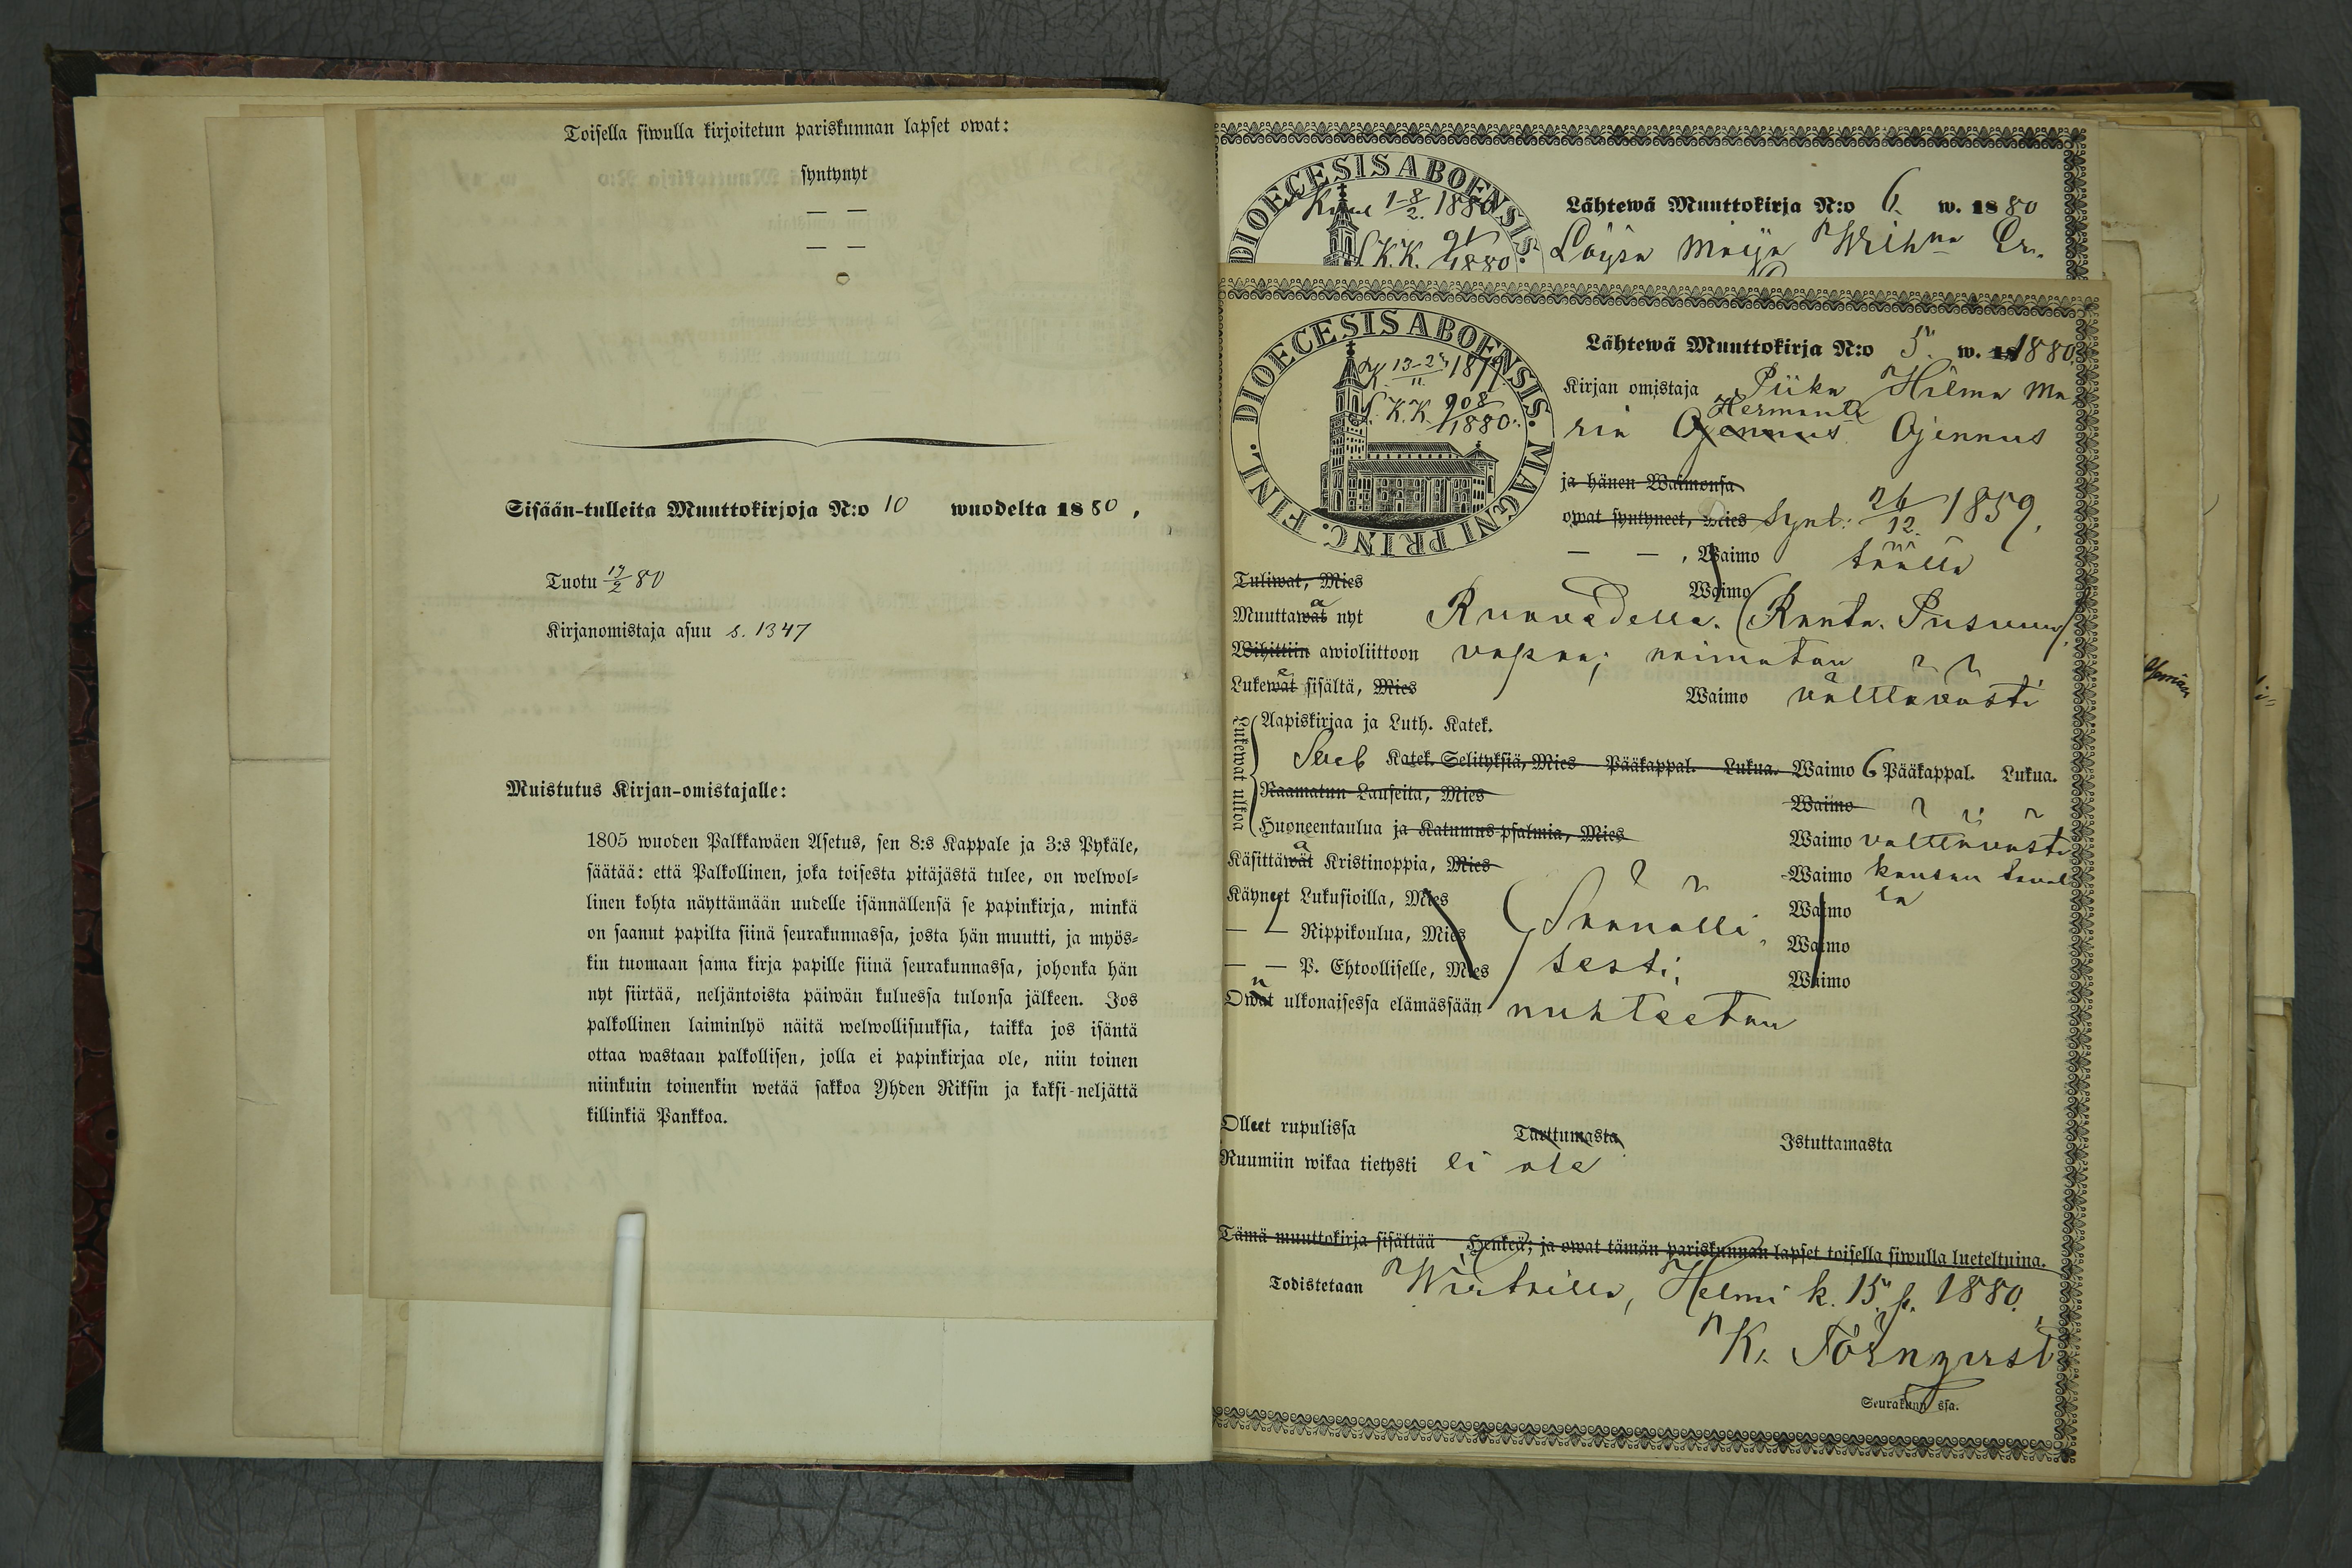 Toisella siwulla kirjoitetun pariskunnan lapset owat:
syntynyt
— —
— —
Sisään-tulleita Muuttokirjoja N:o 10 wuodelta 1880,
Tuotu 19/2 80
Kirjanomistaja asuu s. 1347
Muistutus Kirjan-omistajalle:
1805 wuoden Palkkawäen Asetus, sen 8:s Kappale ja 3:s Pykäle,
säätää: että Palkollinen, joka toisesta pitäjästä tulee, on welwol-
linen kohta näyttämään uudelle isännällensä se papinkirja, minkä
on saanut papilta siinä seurakunnassa, josta hän muutti, ja myös-
kin tuomaan sama kirja papille siinä seurakunnassa, johonka hän
nyt siirtää, neljäntoista päiwän kuluessa tulonsa jälkeen. Jos
palkollinen laiminlyö näitä welwollisuuksia, taikka jos isäntä
ottaa wastaan palkollisen, jolla ei papinkirjaa ole, niin toinen
niinkuin toinenkin wetää sakkoa Yhden Riksin ja kaksi-neljättä
killinkiä Pankkoa.
DIOECESIS ABOENSIS.
1-8/2. 1880
S.K.K. 91/1880
Lähtewä Muuttokirja N:o 6. w. 1880
Löysä Maija
DIOECESIS ABOENSIS. MAGNI PRINC. FINL.
K. 13-23/11. 1879.
S.K.K. 908/1880.
Lähtewä Muuttokirja N:o 5. w. 18 1880.
Kirjan omistaja Piika Hilma Ma
ria Ojennus Hermanti Ojennus
ja hänen Waimonsa
owat syntyneet, Mies Synt: 26/12. 1859.
— — , Waimo täällä
Tuliwat, Mies Waimo
Muuttawat a nyt Runwedella. (Ranta.
Wihittiin awioliittoon vapaa; naimatan
Lukewat ä sisältä, Mies Waimo välttävästi
Lukewat ulkoa
Aapiskirjaa ja Luth. Katek.
Kateк. Selityksiä, Mies Pääkappal. Lukua. Waimo 6 Pääkappal. Lukua.
Raamatun Lauseita, Mies Waimo
Huoneentaulua ja Katumus-psalmia, Mies Waimo välttävästi
Käsittäwät ä Kristinoppia, Mies Waimo kansan taval
la
Käyneet Lukusioilla, Mies Waimo
— — Rippikoulua, Mies Säännölli Waimo
— — P. Ehtoolliselle, Mies sesti; Waimo
Owat n ulkonaisessa elämässään nuhteetan
Olleet rupulissa Tarttumasta Istuttamasta
Ruumiin wikaa tietysti ei ole
Tämä muuttokirja sisältää Henkeä; ja owat tämän pariskunnan lapset toisella siwulla lueteltuina.
Todistetaan Wirtailla, Helmi k. 15 p. 1880.
K. Törnqvist
Seurakunn ssa.